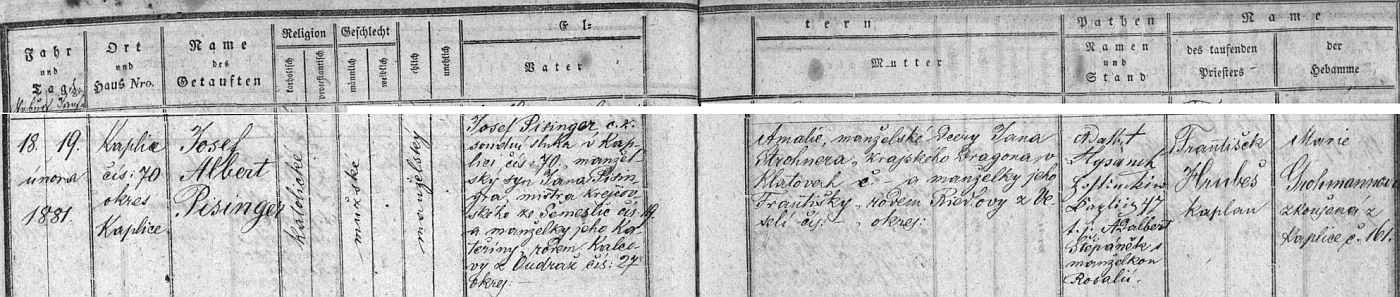 Jahr
und
Tag
Ort
und
Haus Nro.
Name
des
Getauften
Religion
katholisch
protestantisch
Geschlecht
männlich
weiblich
ehlich
unehlich
El-
Vater
tern
Mutter
Pathen
Namen
und
Stand
Name
des taufenden
Priesters
der
Hebamme
18. 19.
února
1881.
Kaplice
čís: 70
okres
Kaplice
Josef
Albert
Pisinger
katolické
mužské
manželský
Josef Pisinger, c. k.
soudní sluha v Kap-
lici čís: 70, manžel-
ský syn Jana Pisin-
gra, mistra krejčov-
ského ze Semešlic čís: 19.
a manželky jeho Ka-
teřiny, rodem
vy z Oudraž čís: 27
okrej:
Amalie, manželské dcery Jana
Strohnera, krajského dragona v
Klatovech č. – a manželky jeho
Františky, rodem Riedlovy z Ve-
selí čís: okrej:
47
t. j. Adalbert
Štěpánek s
manželkou
Rosalií.
František
Hrubeš
kaplan
Marie
Grohmannova
zkoušená z
Kaplice č. 161.